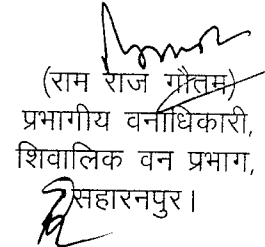 (राम राज गौतम)
प्रभागीय वनाधिकारी,
शिवालिक वन प्रभाग,
सहारनपुर।